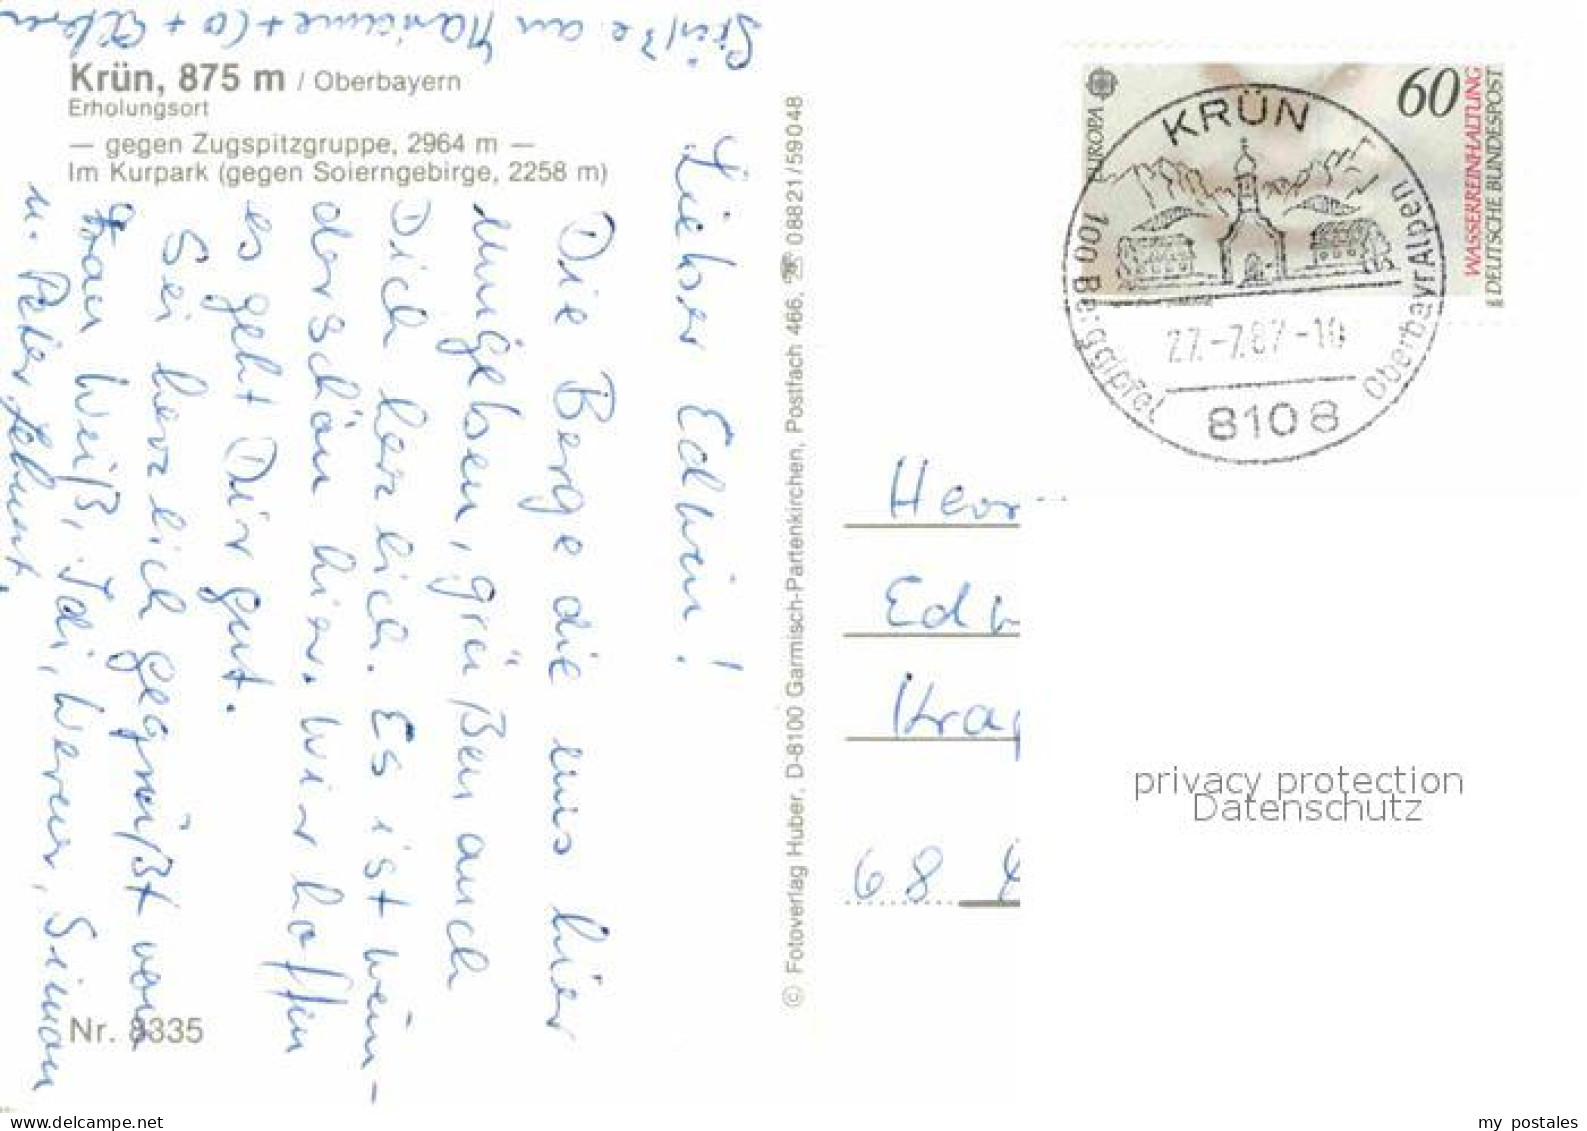 Grüße an Marianne + Co + Eltern
Krün, 875 m / Oberbayern
Erholungsort
— gegen Zugspitzgruppe, 2964 m —
Im Kurpark (gegen Soierngebirge, 2258 m)
Lieber Edwin!
Die Berge die uns hier
umgeben, grüßen auch
Dich herzlich. Es ist wun-
derschön hier. Wir hoffen
es geht Dir gut.
Sei herzlich gegrüßt von
Frau Weiß, Idi, Werner, Simon
u. Peter
Nr. 8335
© Fotoverlag Huber, D-8100 Garmisch-Partenkirchen, Postfach 466, ☏ 08821/59048
EUROPA
60
WASSERREINHALTUNG
DEUTSCHE BUNDESPOST
KRÜN
100 Berggipfel
Oberbayr Alpen
27.-7.87-10
8108
Herr
Edw
Krap
68
privacy protection
Datenschutz
www.delcampe.net
my postales